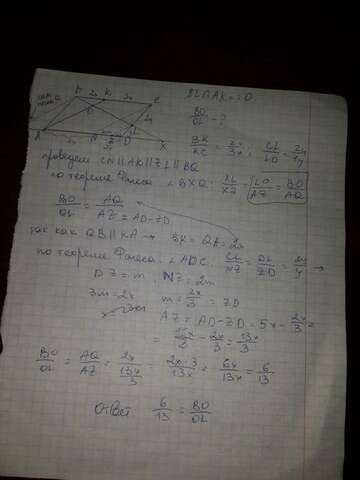 B 2x K 3x C
O
L
A N Z D X
BL∩AK=O
BO/OL - ?
BK/KC = 2x/3x, CL/LD = 2y/1y
проведем CN||AK||ZL||BQ
по теореме Фалеса ∠BXQ: XL/XZ = LO/AZ = BO/AQ
BO/OL = AQ/AZ AZ = AD-ZD
так как QB||KA → BK = QA = 2x
по теореме Фалеса ∠ADC: CL/NZ = DL/ZD = 2y/y →
DZ = m, NZ = 2m
3m = 2x m = 2x/3 = ZD
AZ = AD-ZD = 5x - 2x/3 =
= 15x/3 - 2x/3 = 13x/3
BO/OL = AQ/AZ = 2x/(13x/3) = 2x·3/13x = 6x/13x = 6/13
Ответ 6/13 = BO/OL